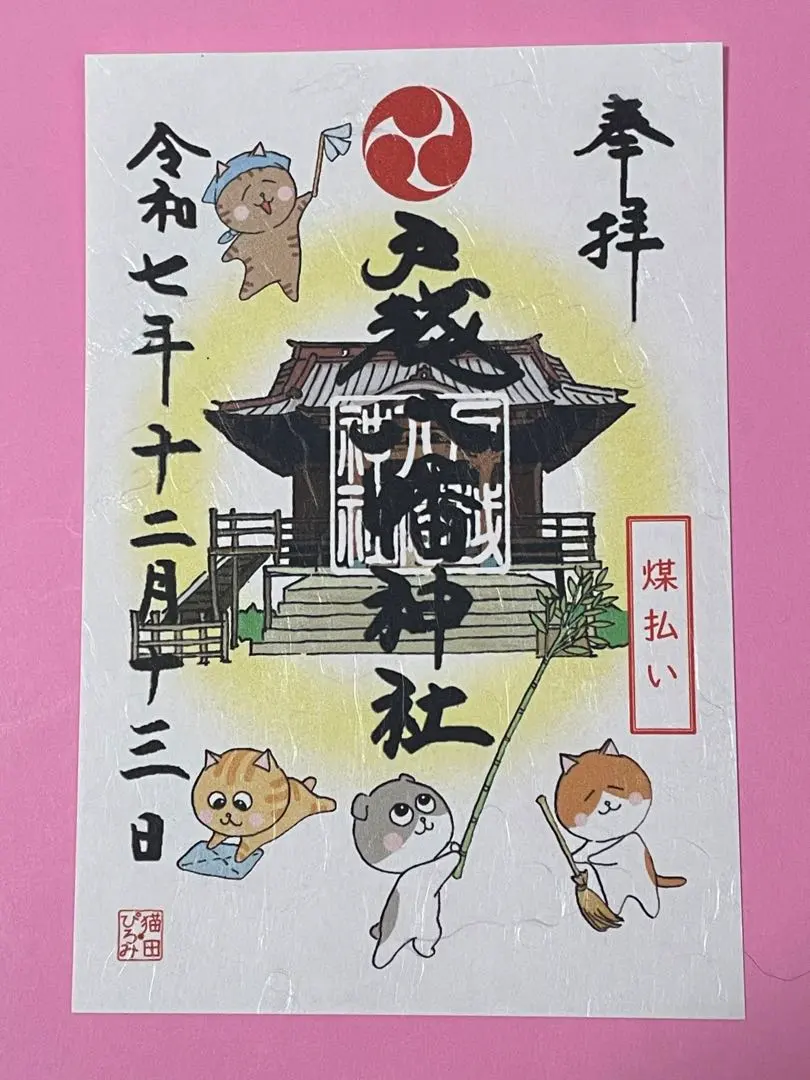 奉拝
戸越八幡神社
令和七年十二月十三日
煤払い
猫田
ぴろみ